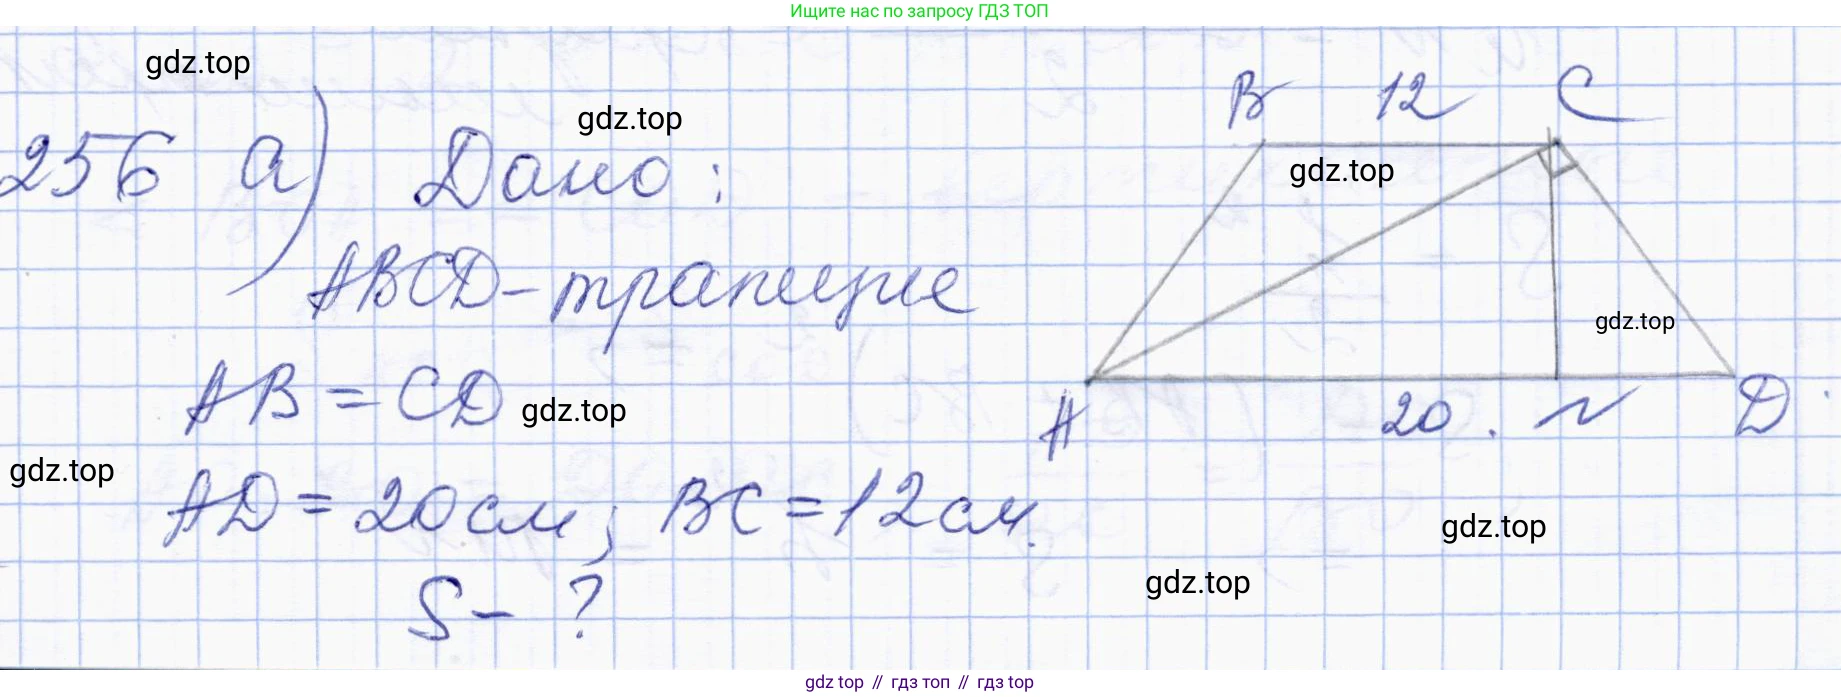 Ищите нас по запросу ГДЗ ТОП
gdz.top
gdz.top
256 а) Дано:
B 12 C
gdz.top
ABCD - трапеция
gdz.top
AB = CD
gdz.top
A 20. N D
gdz.top
AD = 20см; BC = 12см.
gdz.top
gdz.top
S - ?
gdz.top // гдз топ // гдз top